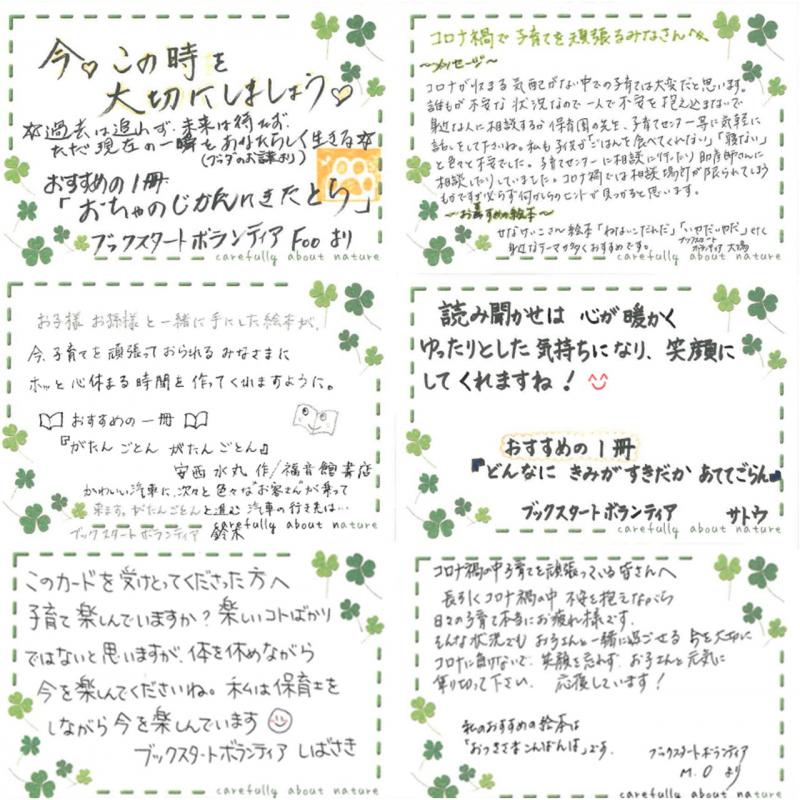 今♡この時を
大切にしましょう♡
☆過去は追わず、未来は待たず、
ただ現在の一瞬をあなたらしく生きる☆
(ブッダのお講より)
おすすめの1冊
「おちゃのじかんにきたとら」
ブックスタートボランティア Fooより
carefully about nature
コロナ禍で子育てを頑張るみなさんへ
～メッセージ～
コロナが収まる気配がない中での子育ては大変だと思います。
誰もが不安な状況なので一人で不安を抱え込まないで
身近な人に相談するか保育園の先生、子育てセンター等に気軽に
話をしてくださいね。私も子供が「ごはんを食べてくれない」「寝ない」
と色々と不安でした。子育てセンターに相談に行ったり助産師さんに
相談したりしていました。コロナ禍では相談場所が限られてしまう
ものですが必ず何かしらのヒントが見つかると思います。
～お薦めの絵本～
せなけいこさん絵本「ねないこだれだ」「いやだいやだ」etc
身近なテーマが多くおすすめです。
ブックスタート
ボランティア 大場
carefully about nature
お子様 お孫様と一緒に手にした絵本が、
今、子育てを頑張っておられるみなさまに
ホッと心休まる時間を作ってくれますように。
おすすめの一冊
『がたん ごとん がたん ごとん』
安西水丸 作/福音館書店
かわいい汽車に、次々と色々な"お客さん"が乗って
来ます。がたんごとんと進む汽車の行き先は…
ブックスタートボランティア 鈴木
carefully about nature
読み聞かせは 心が暖かく
ゆったりとした気持ちになり、笑顔に
してくれますね!
おすすめの1冊
『どんなに きみがすきだか あててごらん』
ブックスタートボランティア サトウ
carefully about nature
このカードを受けとってくださった方へ
子育て楽しんでいますか?楽しいコトばかり
ではないと思いますが、体を休めながら
今を楽しんでくださいね。私は保育士を
しながら今を楽しんでいます
ブックスタートボランティア しばさき
carefully about nature
コロナ禍の中子育てを頑張っている皆さんへ
長引くコロナ禍の中 不安を抱えながら
日々の子育て本当にお疲れ様です。
そんな状況でも お子さんと一緒に過ごせる 今を大切に
コロナに負けないで、笑顔を忘れず、お子さんと元気に
乗り切って下さい。 応援しています!
私のおすすめの絵本は
「おつきさまこんばんは」です。
ブックスタートボランティア
M.Oより
carefully about nature